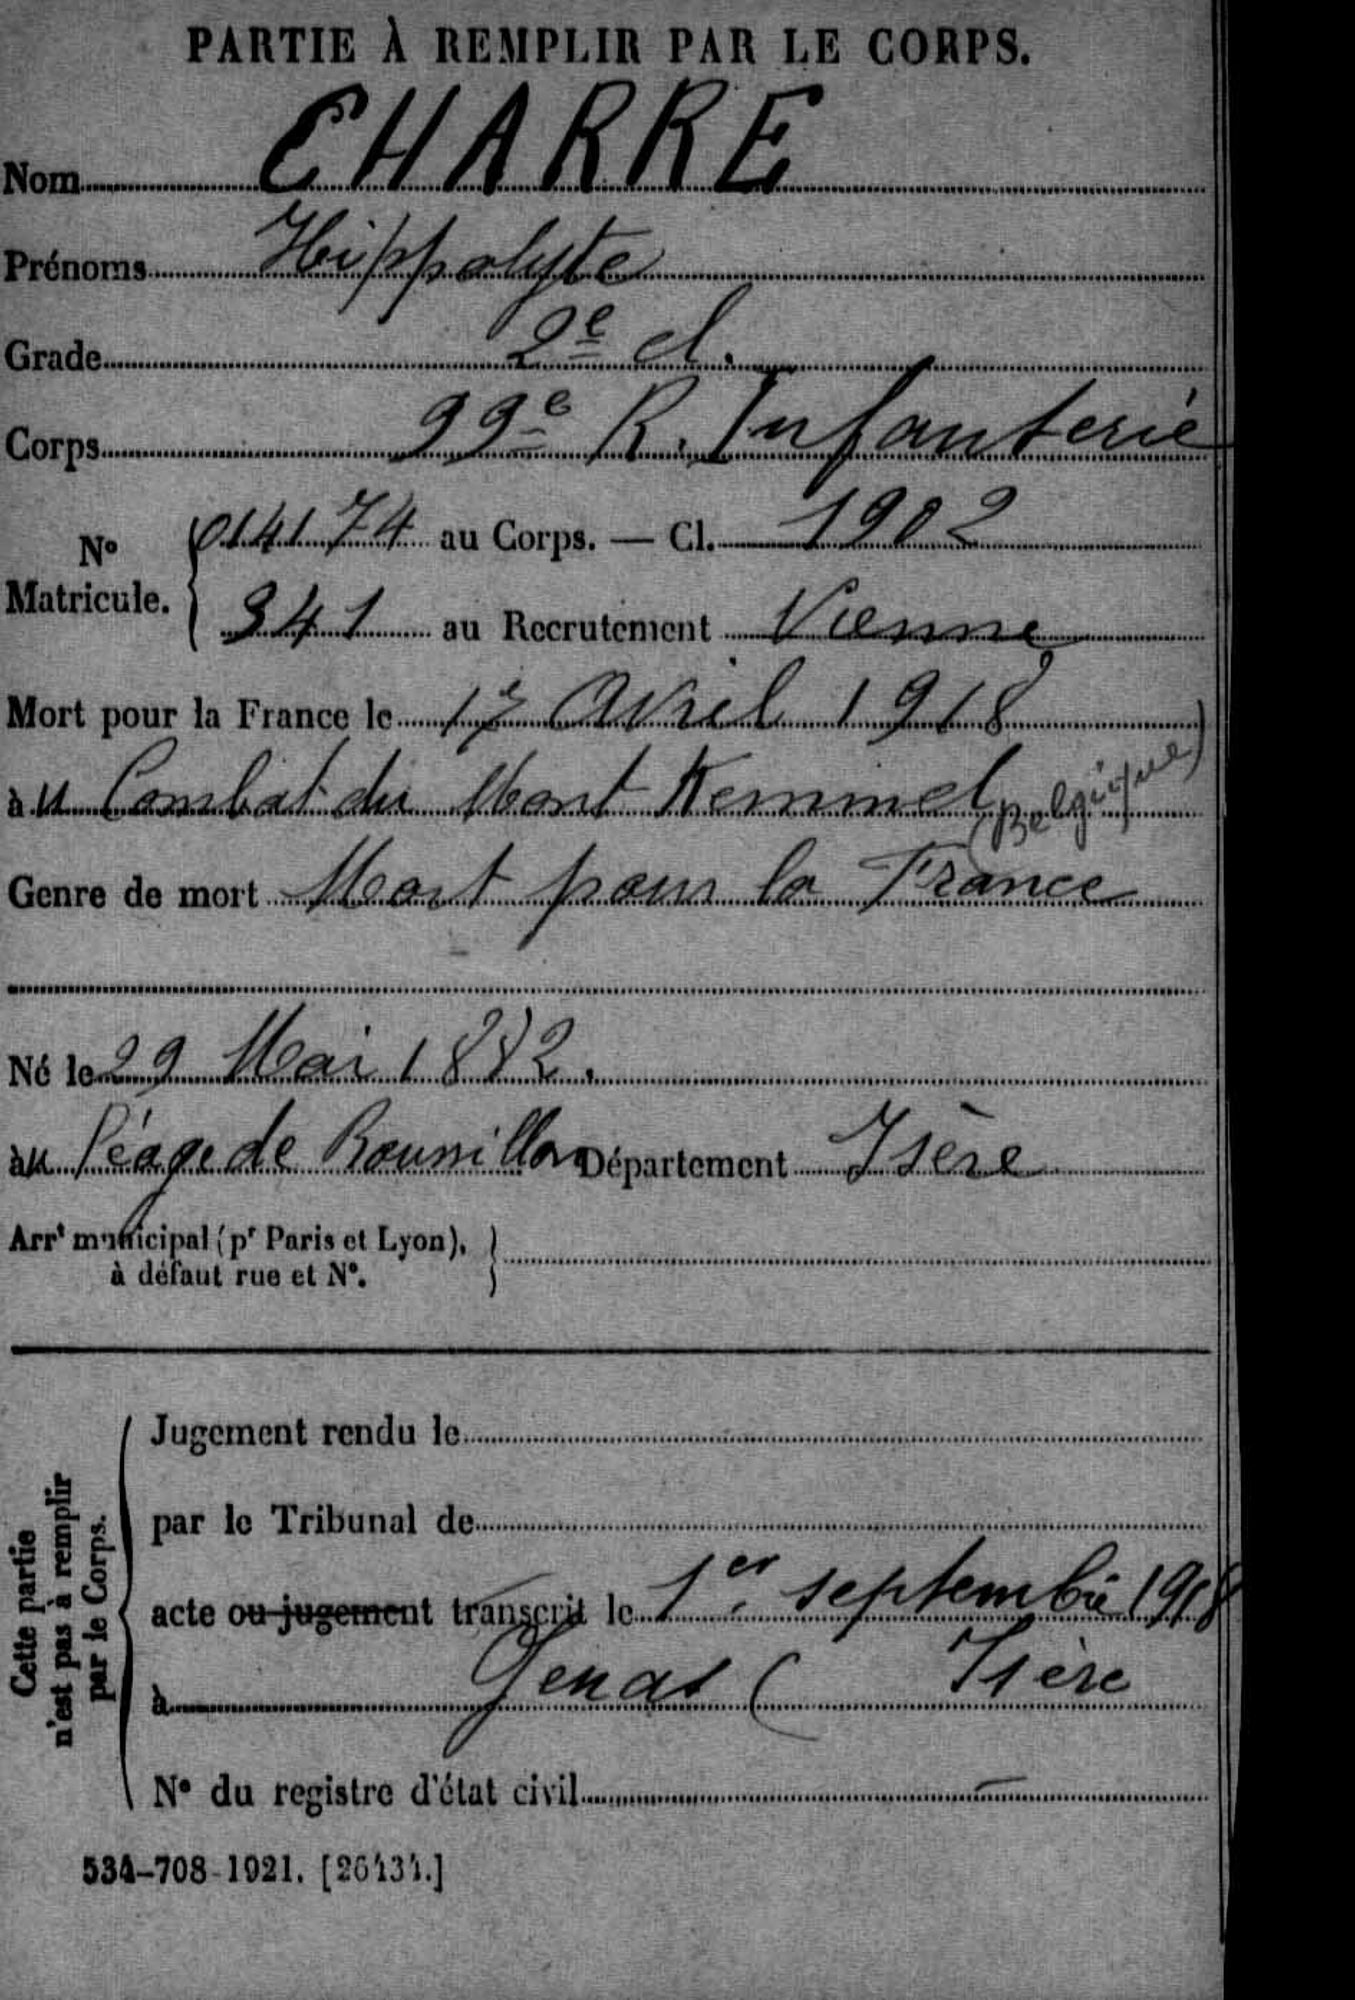 PARTIE À REMPLIR PAR LE CORPS.
Nom CHARRE
Prénoms Hippolyte
Grade 2e cl.
Corps 99e R. Infanterie
No Matricule. 014174 au Corps. — Cl. 1902
341 au Recrutement Vienne
Mort pour la France le 17 Avril 1918
au Combat du Mont Kemmel (Belgique)
Genre de mort Mort pour la France
Né le 29 Mai 1882.
au Péage de Roussillon Département Isère
Arrt municipal (pr Paris et Lyon),
à défaut rue et No.
Cette partie
n'est pas à remplir
par le Corps.
Jugement rendu le
par le Tribunal de
acte ou jugement transcrit le 1er septembre 1918
à Genas ( Isère
No du registre d'état civil —
534-708-1921. [26434.]